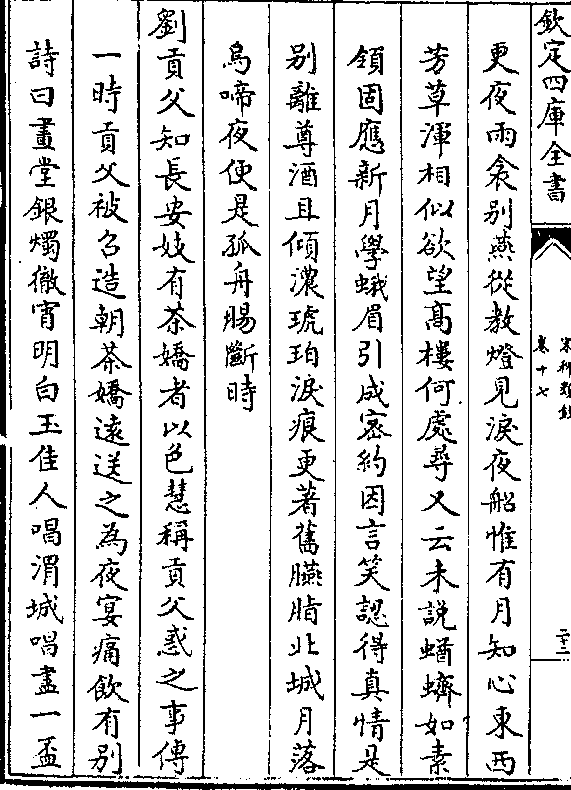 欽定四庫全書
宋稗類鈔
卷十七
更夜雨衾别燕從教燈見淚夜船惟有月知心東西
芳草渾相似欲望髙樓何處尋又云未説蝤蠐如素
領固應新月學蛾眉引成宻約因言笑認得真情是
别離尊酒且傾濃琥珀淚痕更著舊臙脂北城月落
烏啼夜便是孤舟腸斷時
劉貢父知長安妓有茶嬌者以色慧稱貢父惑之事傳
一時貢父被召造朝茶嬌逺送之為夜宴痛飲有别
詩曰畫堂銀燭徹宵明白玉佳人唱渭城唱盡一盃